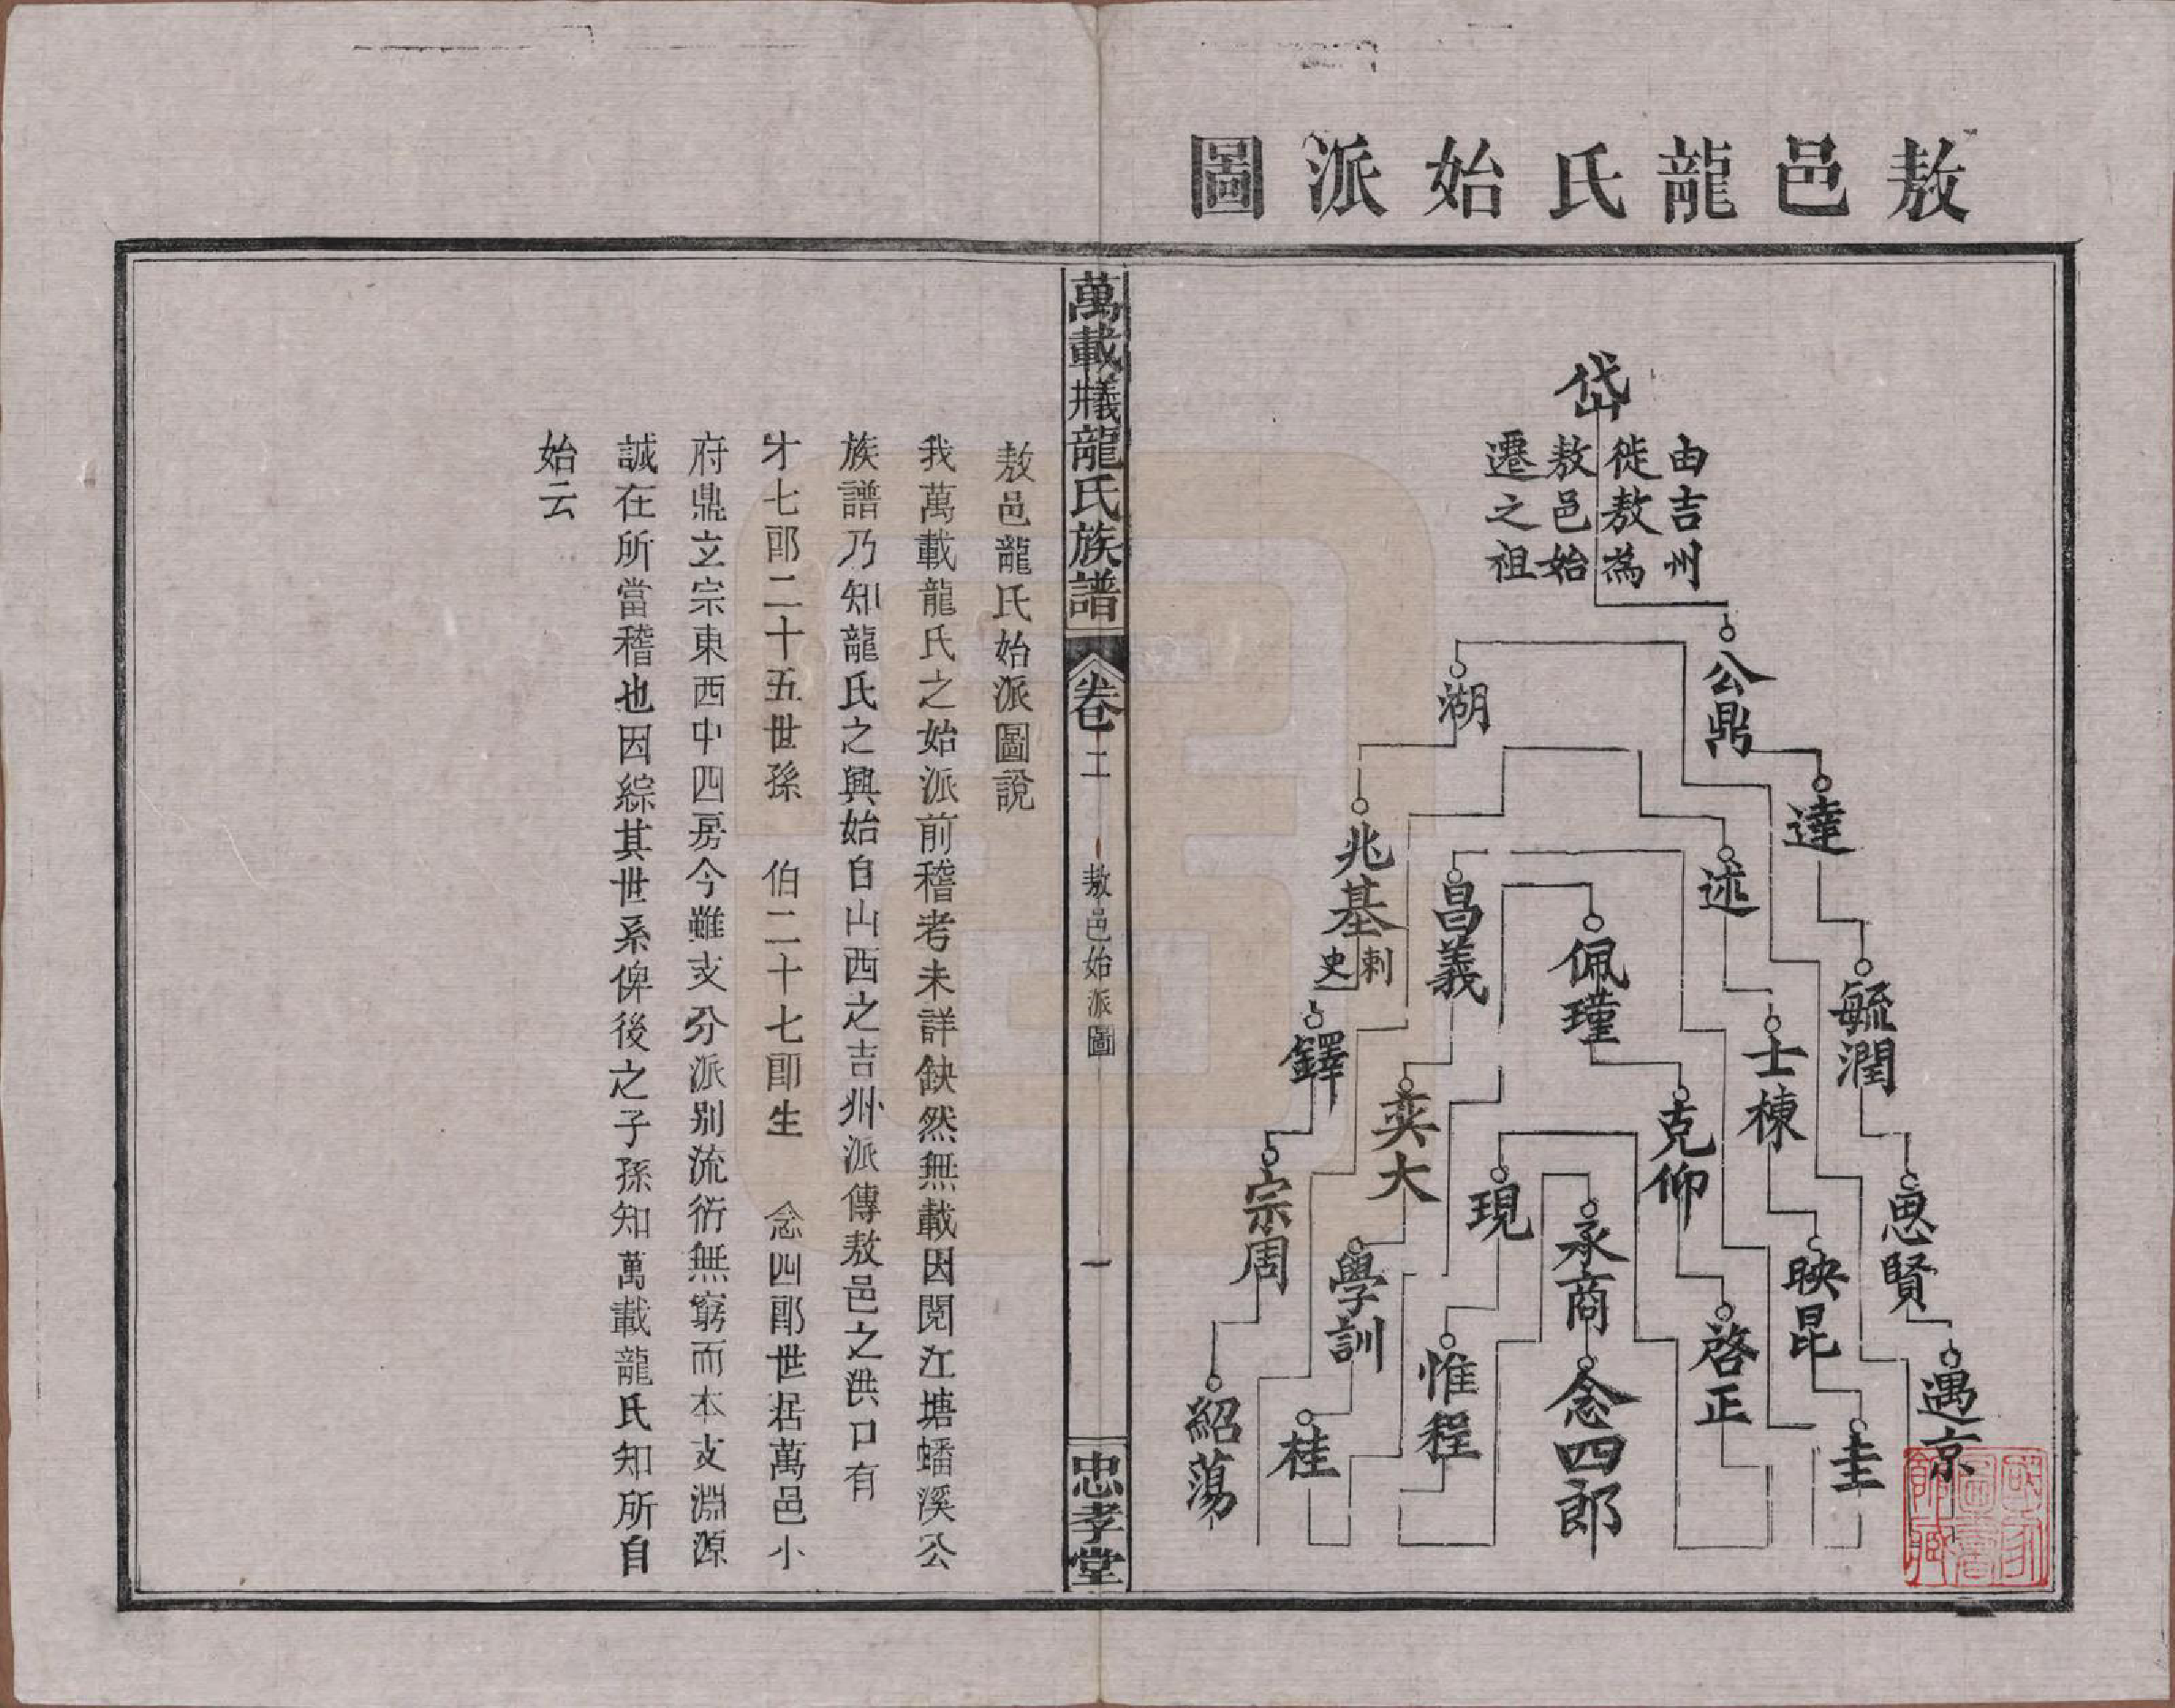 敖邑龍氏始派圖
岱
由吉州
徙敖為
敖邑始
遷之祖
公鼎
達
毓潤
思賢
遇京
圭
映昆
士棟
述
湖
兆基
刺史
鐸
宗周
紹蕩
桂
學訓
奕大
昌義
佩瑾
克仰
啓正
現
惟程
承商
念四郎
萬載㦮龍氏族譜
卷二
敖邑始派圖
一
忠孝堂
敖邑龍氏始派圖說
我萬載龍氏之始派前稽考未詳缺然無載因閱江塘蟠溪公
族譜乃知龍氏之興始自山西之吉州派傳敖邑之洪口有
才七郎二十五世孫 伯二十七郎生 念四郎世居萬邑小
府鼎立宗東西中四房今雖支分派别流衍無窮而本支淵源
誠在所當稽也因綜其世系俾後之子孫知萬載龍氏知所自
始云